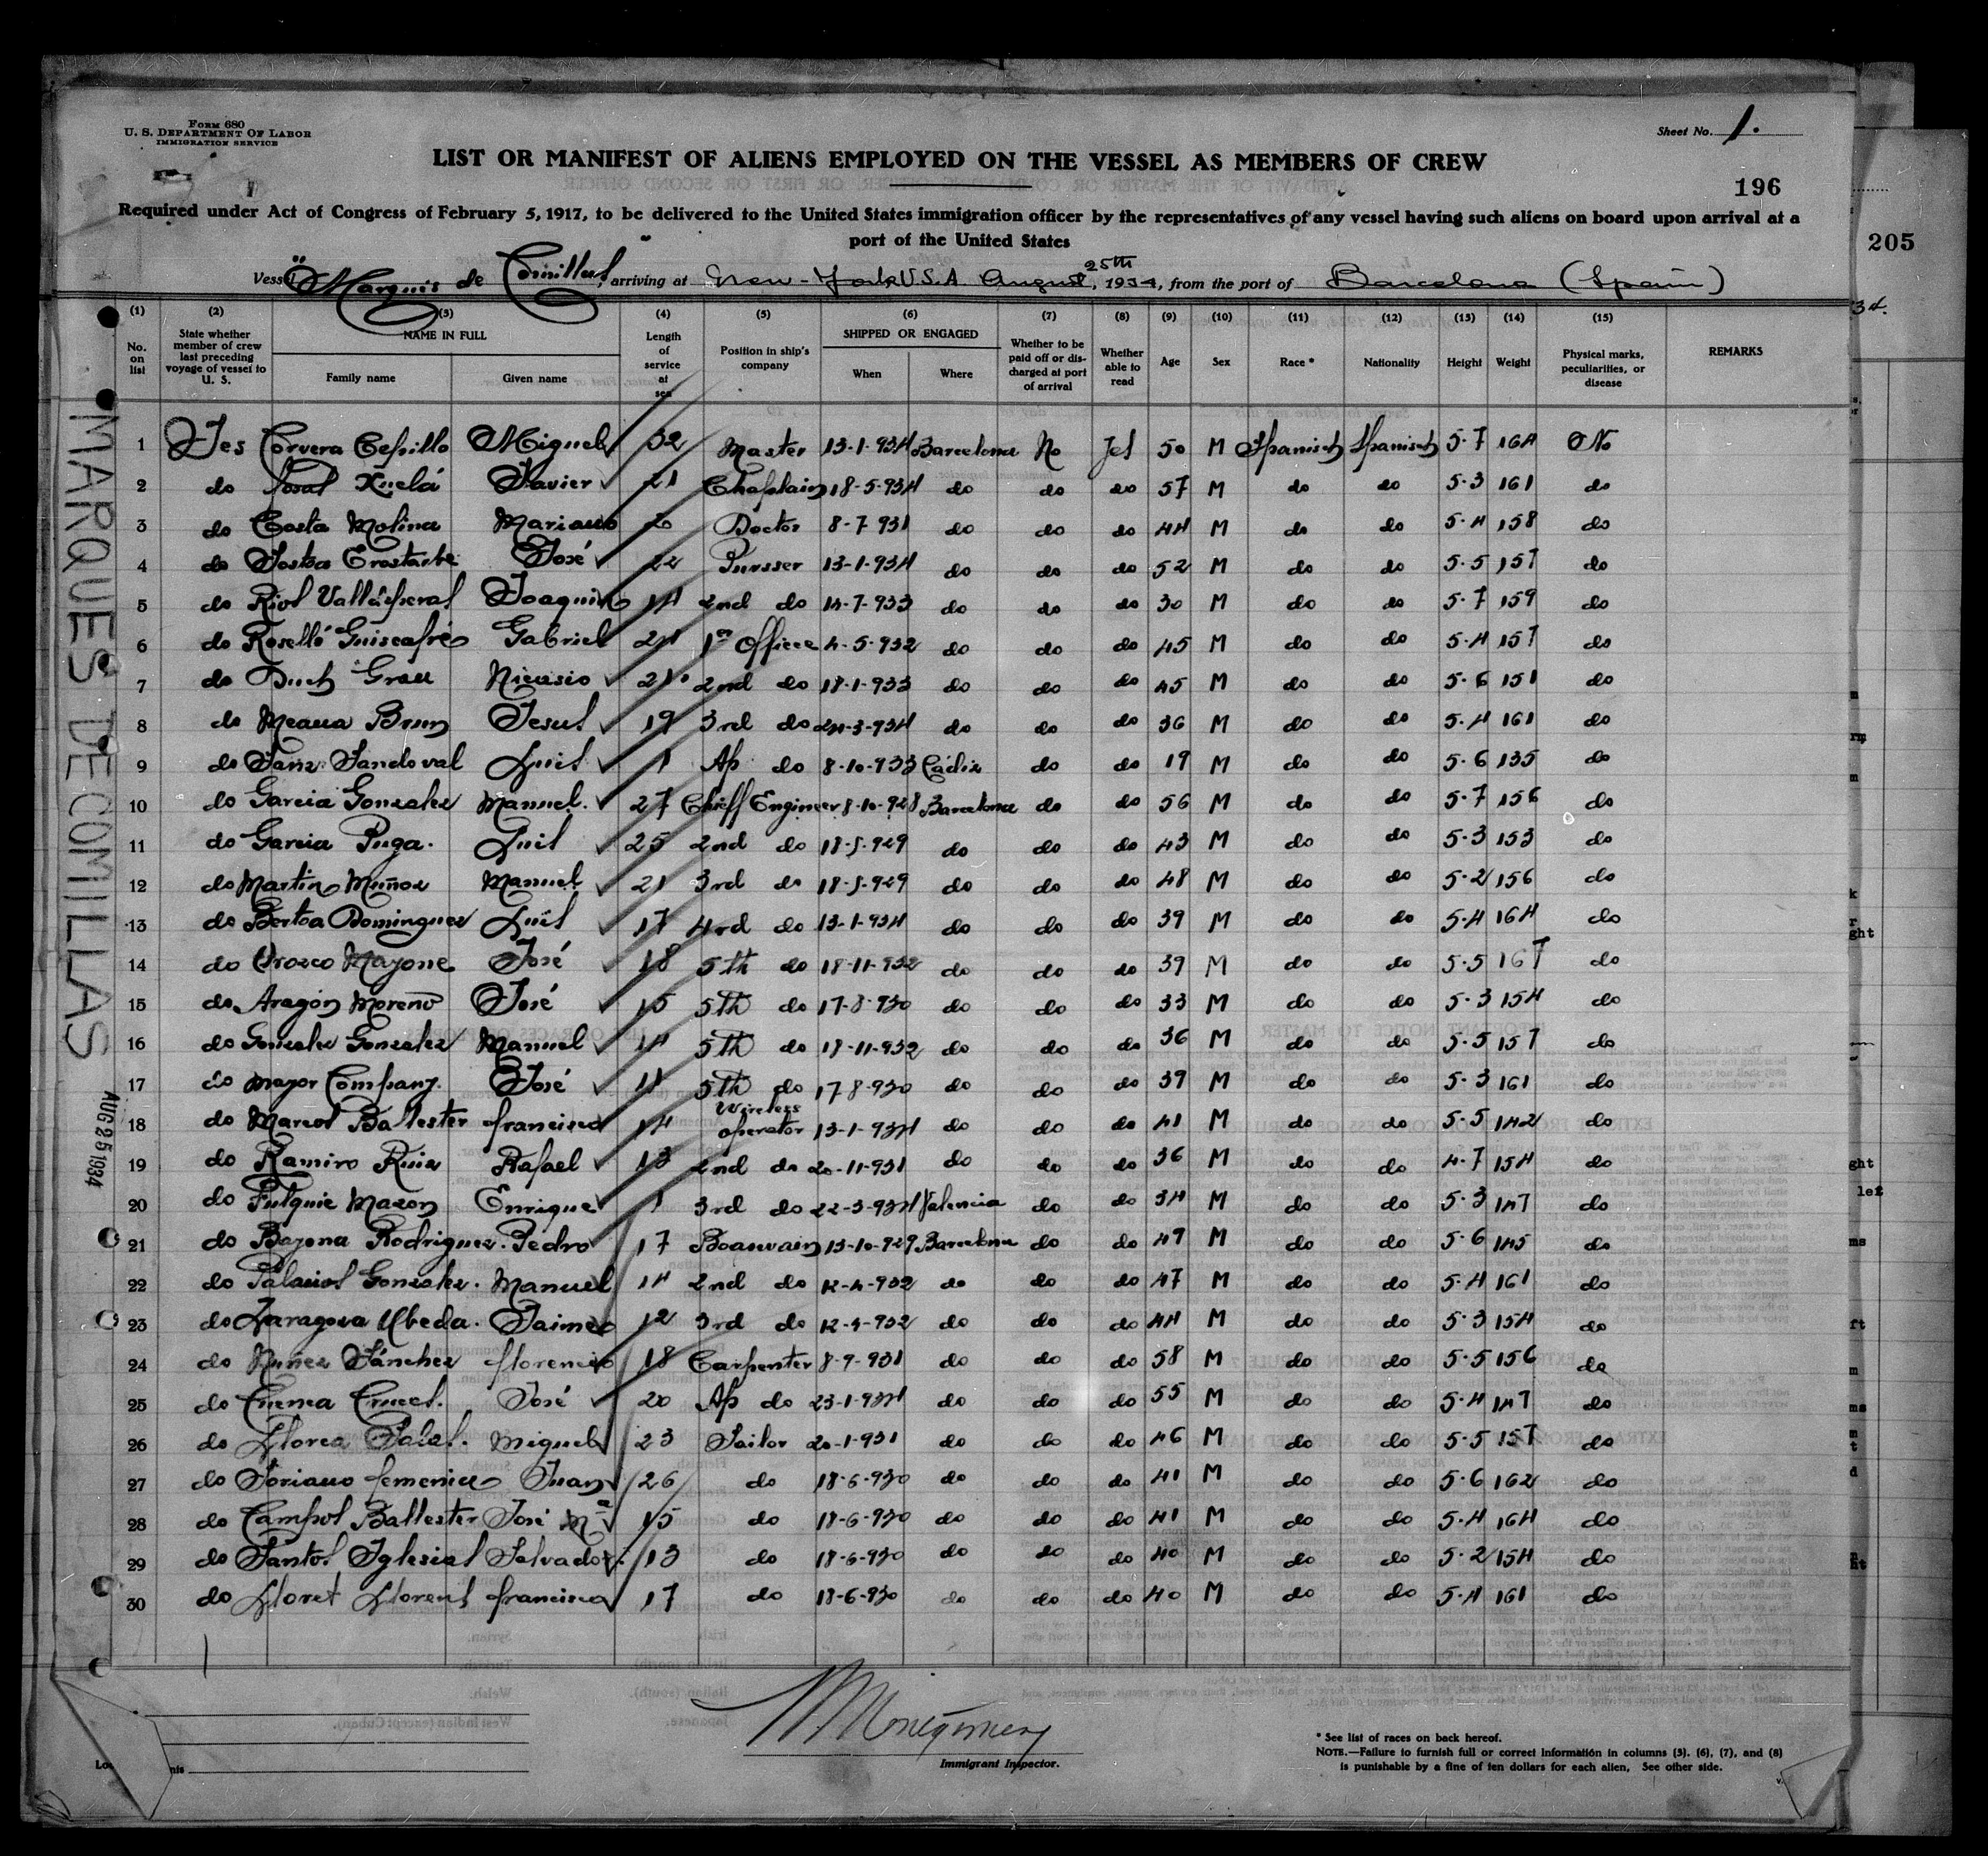 Form 680
U. S. Department Of Labor
IMMIGRATION SERVICE
Sheet No. 1.
LIST OR MANIFEST OF ALIENS EMPLOYED ON THE VESSEL AS MEMBERS OF CREW
196
Required under Act of Congress of February 5, 1917, to be delivered to the United States immigration officer by the representatives of any vessel having such aliens on board upon arrival at a
port of the United States
205
Vessel "Marques de Comillas", arriving at New-York U.S.A. August 25th, 1934, from the port of Barcelona (Spain)
(1) (2) (3) (4) (5) (6) (7) (8) (9) (10) (11) (12) (13) (14) (15)
No. on list | State whether member of crew last preceding voyage of vessel to U. S. | NAME IN FULL Family name Given name | Length of service at sea | Position in ship's company | SHIPPED OR ENGAGED When Where | Whether to be paid off or discharged at port of arrival | Whether able to read | Age | Sex | Race * | Nationality | Height | Weight | Physical marks, peculiarities, or disease | REMARKS
1 Yes Corvera Cepillo Miguel 32 Master 13-1-934 Barcelona No Yes 50 M Spanish Spanish 5-7 164 No
2 do Xuclá Javier 21 Chaplain 18-5-934 do do do 57 M do do 5-3 161 do
3 do Costa Molina Mariano Doctor 8-7-931 do do do 44 M do do 5-4 158 do
4 do José 22 Pursser 13-1-934 do do do 52 M do do 5-5 157 do
5 do Joaquin 14 2nd do 14-7-933 do do do 30 M do do 5-7 159 do
6 do Roselló Guiscafré Gabriel 21 1er Officer 4-5-932 do do do 45 M do do 5-4 157 do
7 do Duch Grau Nicasio 21 2nd do 18-1-933 do do do 45 M do do 5-6 151 do
8 do Meana Brun Jesus 19 3rd do 24-3-934 do do do 36 M do do 5-4 161 do
9 do Sanz Sandoval Luis 1 Ap. do 8-10-933 Cádiz do do 19 M do do 5-6 135 do
10 do Garcia Gonzalez Manuel. 27 Chieff Engineer 8-10-928 Barcelona do do 56 M do do 5-7 156 do
11 do Garcia Puga. Luis 25 2nd do 18-5-929 do do do 43 M do do 5-3 153 do
12 do Martin Muñoz Manuel 21 3rd do 18-5-929 do do do 48 M do do 5-2 156 do
13 do Bertoa Dominguez Luis 17 4rd do 13-1-934 do do do 39 M do do 5-4 164 do
14 do Orozco Mayone José 18 5th do 18-11-932 do do do 39 M do do 5-5 167 do
15 do Aragón Moreno José 15 5th do 17-8-930 do do do 33 M do do 5-3 154 do
16 do Gonzalez Gonzalez Manuel 14 5th do 18-11-932 do do do 36 M do do 5-5 157 do
17 do Mayor Company. José 11 5th do 17-8-930 do do do 39 M do do 5-3 161 do
18 do Marcos Ballester francisco 14 Wireless operator 13-1-934 do do do 41 M do do 5-5 142 do
19 do Ramiro Ruiz Rafael 13 2nd do 20-11-931 do do do 36 M do do 4-7 154 do
20 do Enrique 1 3rd do 22-3-934 Valencia do do 34 M do do 5-3 147 do
21 do Bayona Rodriguez. Pedro 17 Boasvain 13-10-929 Barcelona do do 49 M do do 5-6 145 do
22 do Palacios Gonzalez. Manuel 14 2nd do 12-4-932 do do do 47 M do do 5-4 161 do
23 do Zaragoza Ubeda. Jaime 12 3rd do 12-4-932 do do do 44 M do do 5-3 154 do
24 do Nuñez Sánchez florencio 18 Carpenter 8-9-931 do do do 58 M do do 5-5 156 do
25 do José 20 Ap do 23-1-934 do do do 55 M do do 5-4 147 do
26 do Llorca Miguel 23 Sailor 20-1-931 do do do 46 M do do 5-5 157 do
27 do Soriano femenia Juan 26 do 18-6-930 do do do 41 M do do 5-6 162 do
28 do Campos Ballester José Mª 15 do 18-6-930 do do do 41 M do do 5-4 164 do
29 do Santos Iglesias Salvador. 13 do 18-6-930 do do do 40 M do do 5-2 154 do
30 do Lloret Llorens francisco 17 do 18-6-930 do do do 40 M do do 5-4 161 do
MARQUES DE COMILLAS
AUG 25 1934
Montgomery
Immigrant Inspector.
* See list of races on back hereof.
Note.—Failure to furnish full or correct information in columns (3), (6), (7), and (8)
is punishable by a fine of ten dollars for each alien. See other side.